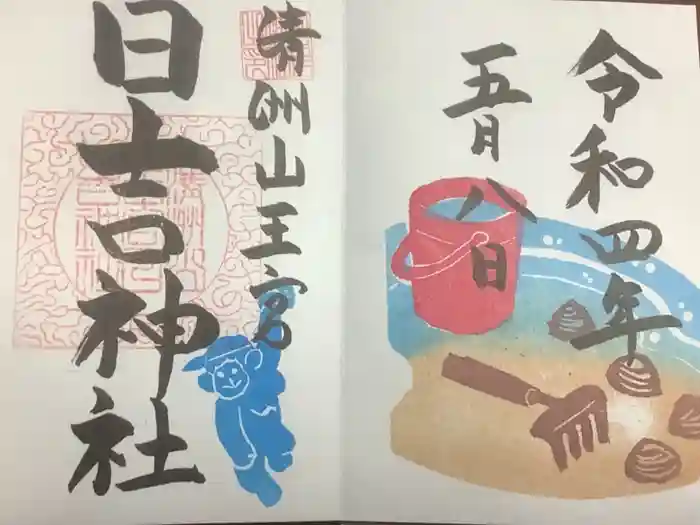 令和四年
五月八日
清洲山王宮
日吉神社